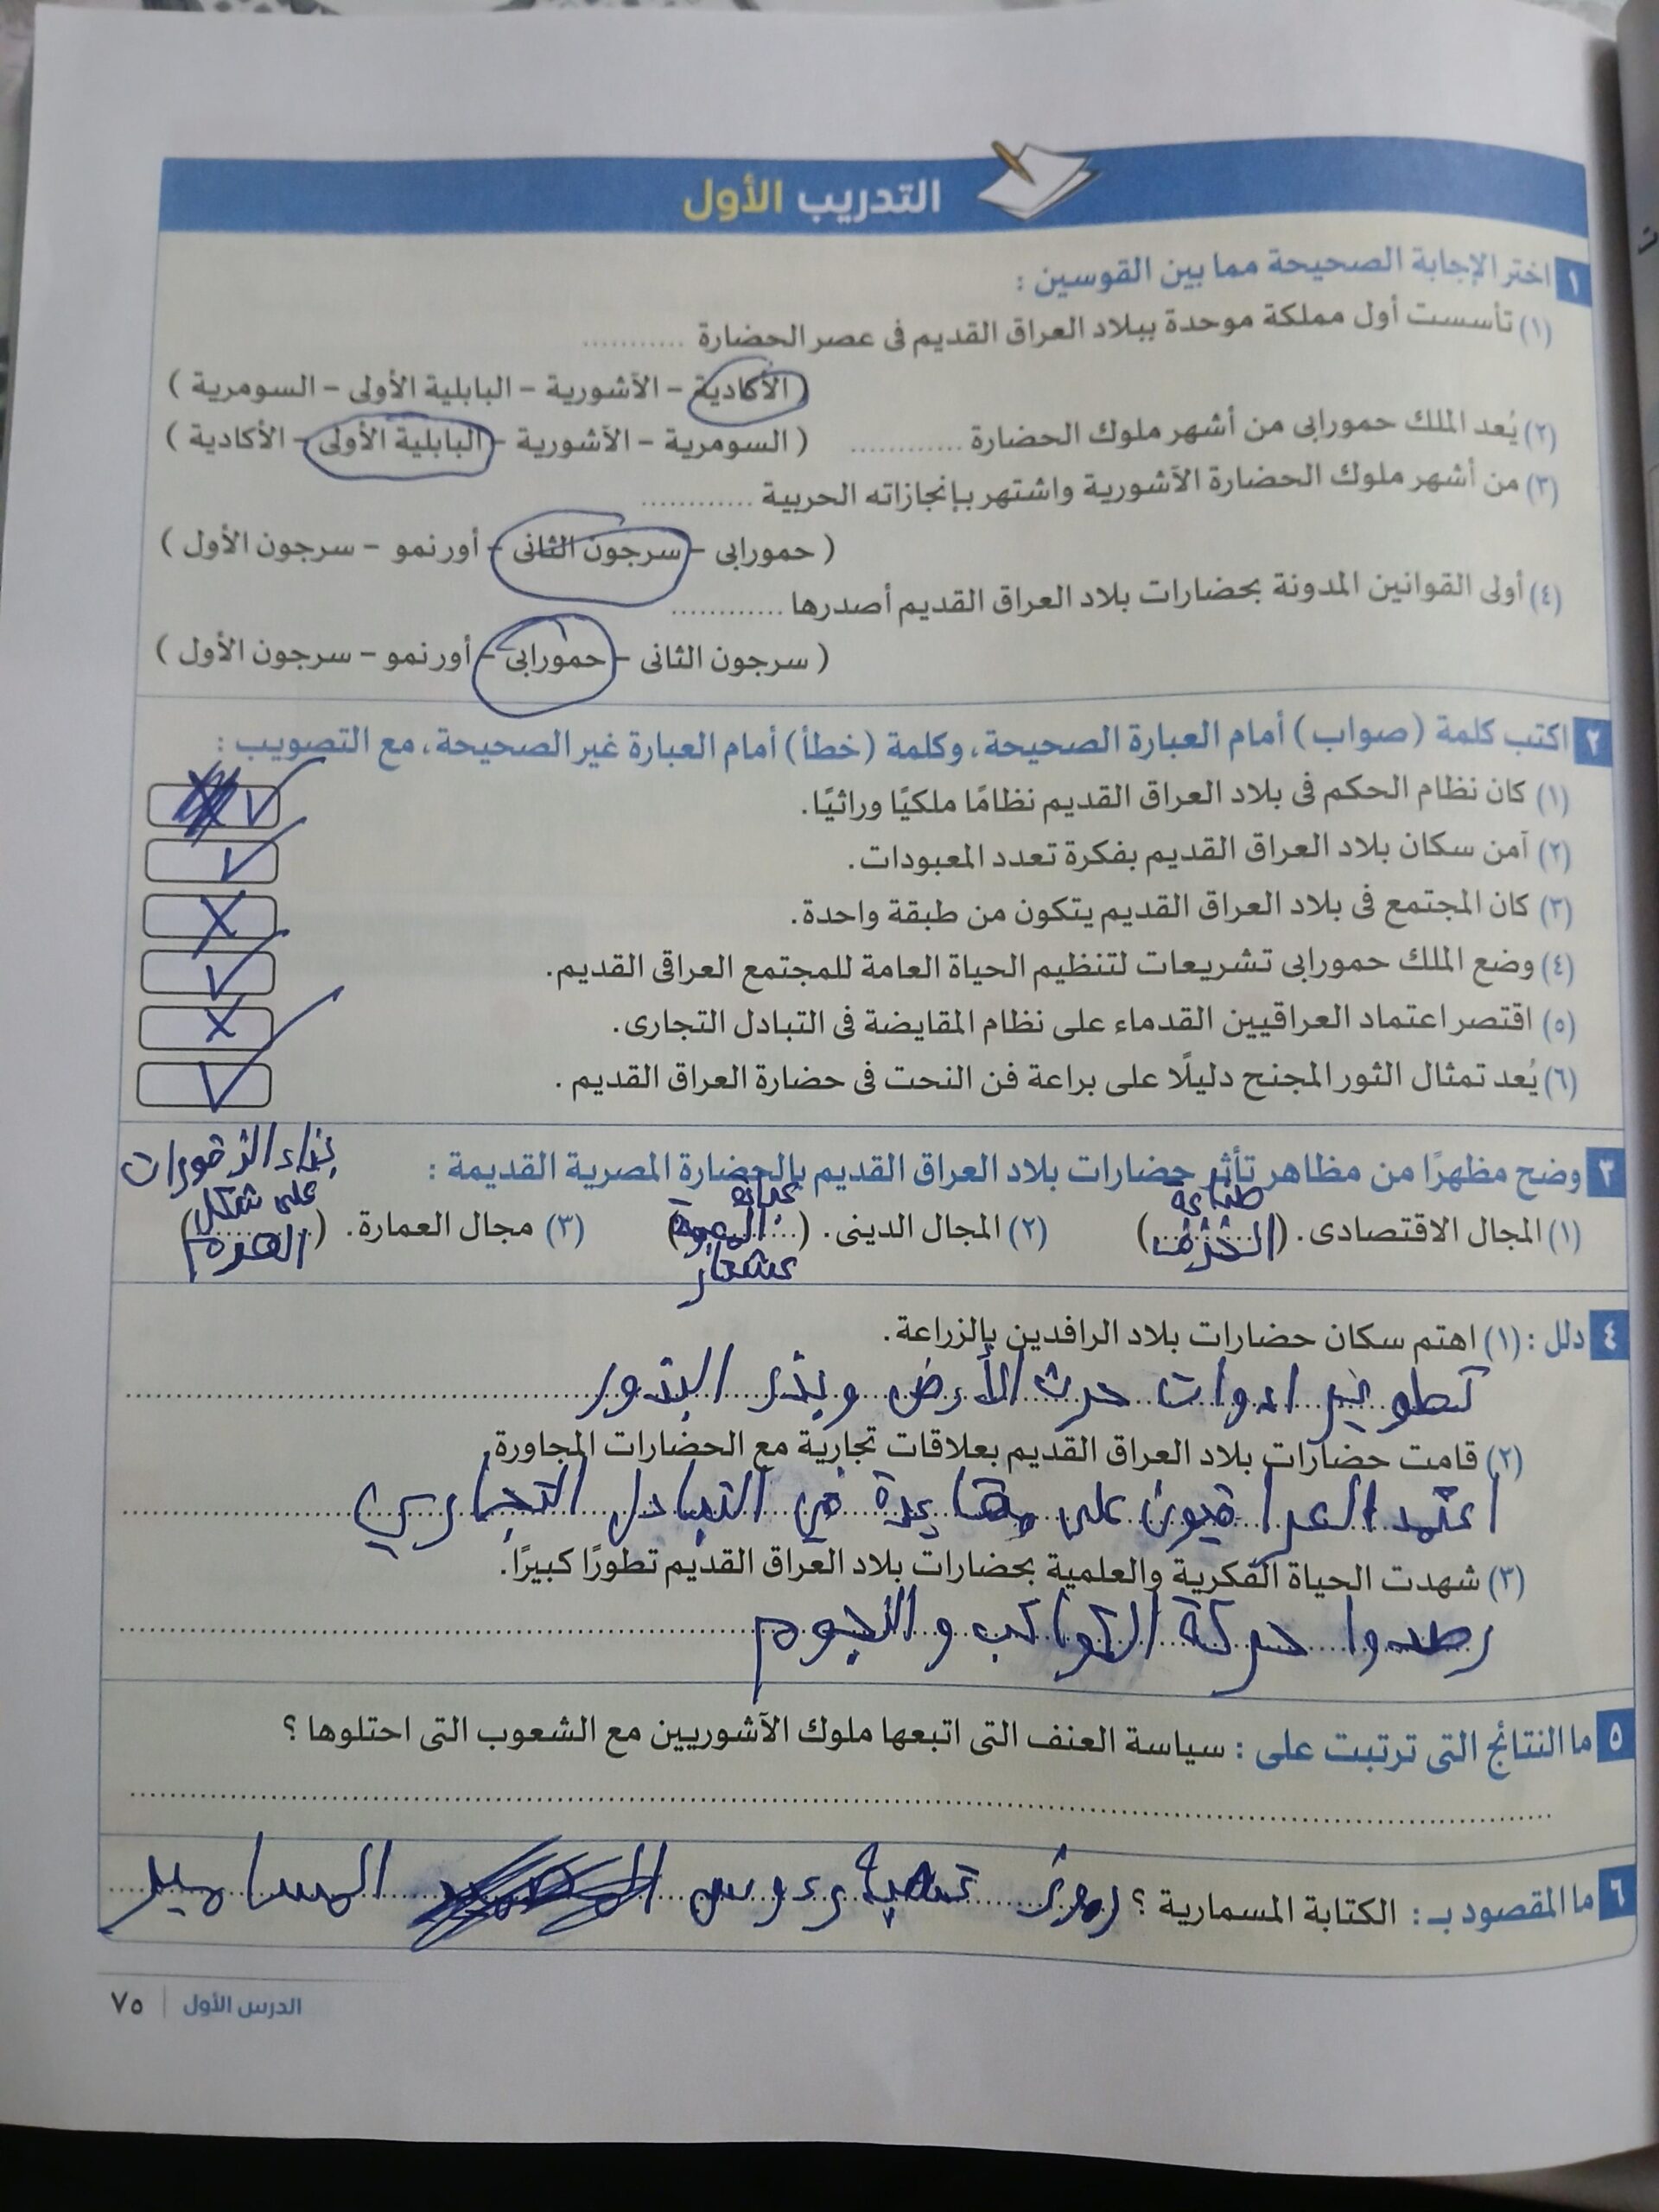 التدريب الأول
١ اختر الإجابة الصحيحة مما بين القوسين :
(١) تأسست أول مملكة موحدة ببلاد العراق القديم فى عصر الحضارة ............
( الأكادية – الآشورية – البابلية الأولى – السومرية )
(٢) يُعد الملك حمورابى من أشهر ملوك الحضارة ............ ( السومرية – الآشورية – البابلية الأولى – الأكادية )
(٣) من أشهر ملوك الحضارة الآشورية واشتهر بإنجازاته الحربية ............
( حمورابى – سرجون الثانى – أورنمو – سرجون الأول )
(٤) أولى القوانين المدونة بحضارات بلاد العراق القديم أصدرها ............
( سرجون الثانى – حمورابى – أورنمو – سرجون الأول )
٢ اكتب كلمة (صواب) أمام العبارة الصحيحة، وكلمة (خطأ) أمام العبارة غير الصحيحة، مع التصويب :
(١) كان نظام الحكم فى بلاد العراق القديم نظامًا ملكيًا وراثيًا. ✓
(٢) آمن سكان بلاد العراق القديم بفكرة تعدد المعبودات. ✓
(٣) كان المجتمع فى بلاد العراق القديم يتكون من طبقة واحدة. ✗
(٤) وضع الملك حمورابى تشريعات لتنظيم الحياة العامة للمجتمع العراقى القديم. ✓
(٥) اقتصر اعتماد العراقيين القدماء على نظام المقايضة فى التبادل التجارى. ✗
(٦) يُعد تمثال الثور المجنح دليلًا على براعة فن النحت فى حضارة العراق القديم. ✓
٣ وضح مظهرًا من مظاهر تأثر حضارات بلاد العراق القديم بالحضارة المصرية القديمة :
(١) المجال الاقتصادى. (الخزف) (٢) المجال الدينى. (عشتار) (٣) مجال العمارة. (بناء الزقورات على شكل الهرم)
٤ دلل : (١) اهتم سكان حضارات بلاد الرافدين بالزراعة.
تطوير ادوات حرث الأرض وبذر البذور
(٢) قامت حضارات بلاد العراق القديم بعلاقات تجارية مع الحضارات المجاورة.
اعتمد العراقيون على مقايضة في التبادل التجاري
(٣) شهدت الحياة الفكرية والعلمية بحضارات بلاد العراق القديم تطورًا كبيرًا.
رصدوا حركة الكواكب والنجوم
٥ ما النتائج التى ترتبت على : سياسة العنف التى اتبعها ملوك الآشوريين مع الشعوب التى احتلوها ؟
٦ ما المقصود بـ : الكتابة المسمارية ؟ رموز تشبة رءوس المسامير
الدرس الأول | ٧٥